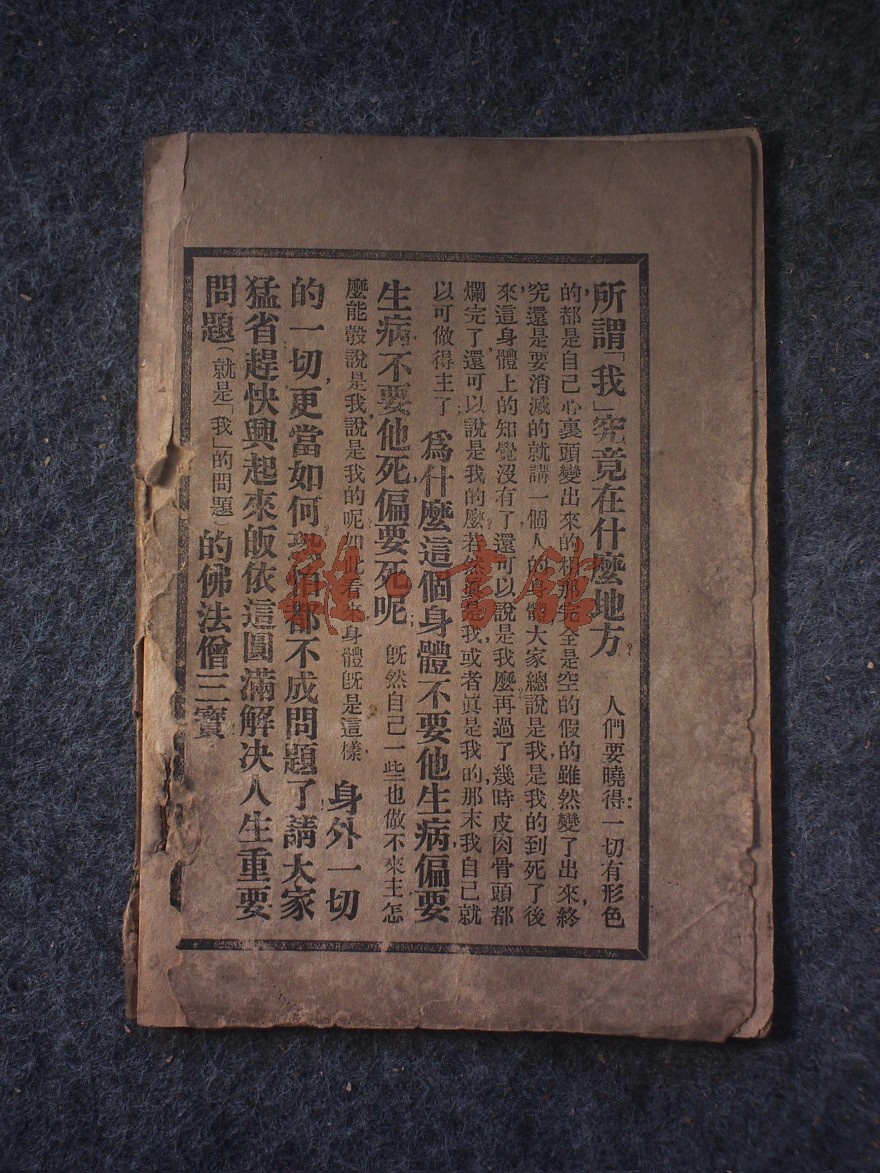 所謂「我」究竟在什麼地方？　人們要曉得：一切有形色
的都是自己心裏頭變出來的相，那完全是空的假的，雖然變了出來，終
究還是要消滅的，就講一個人的身體，大家總說是我，是我的，到死了後
來，這身體上的知覺沒有了，還可以說是我麼？再過了幾時，皮肉骨頭都
爛完了，還可以說是我的麼？若然眞是我，或者眞是我的，那末我自己就
以可做得主了：爲什麼這個身體，不要他生病，偏要
生病，不要他死，偏要死呢？　旣然自己一些也做不來主，怎
麼能彀說是我，說是我的呢？如此看來，身體旣是這樣，身外一切
的一切，更當如何？都不成問題了，請大家
猛省，趕快興起來，皈依這圓滿解决人生重要
問題（就是「我」的問題）的佛法僧三寶
雜·書館